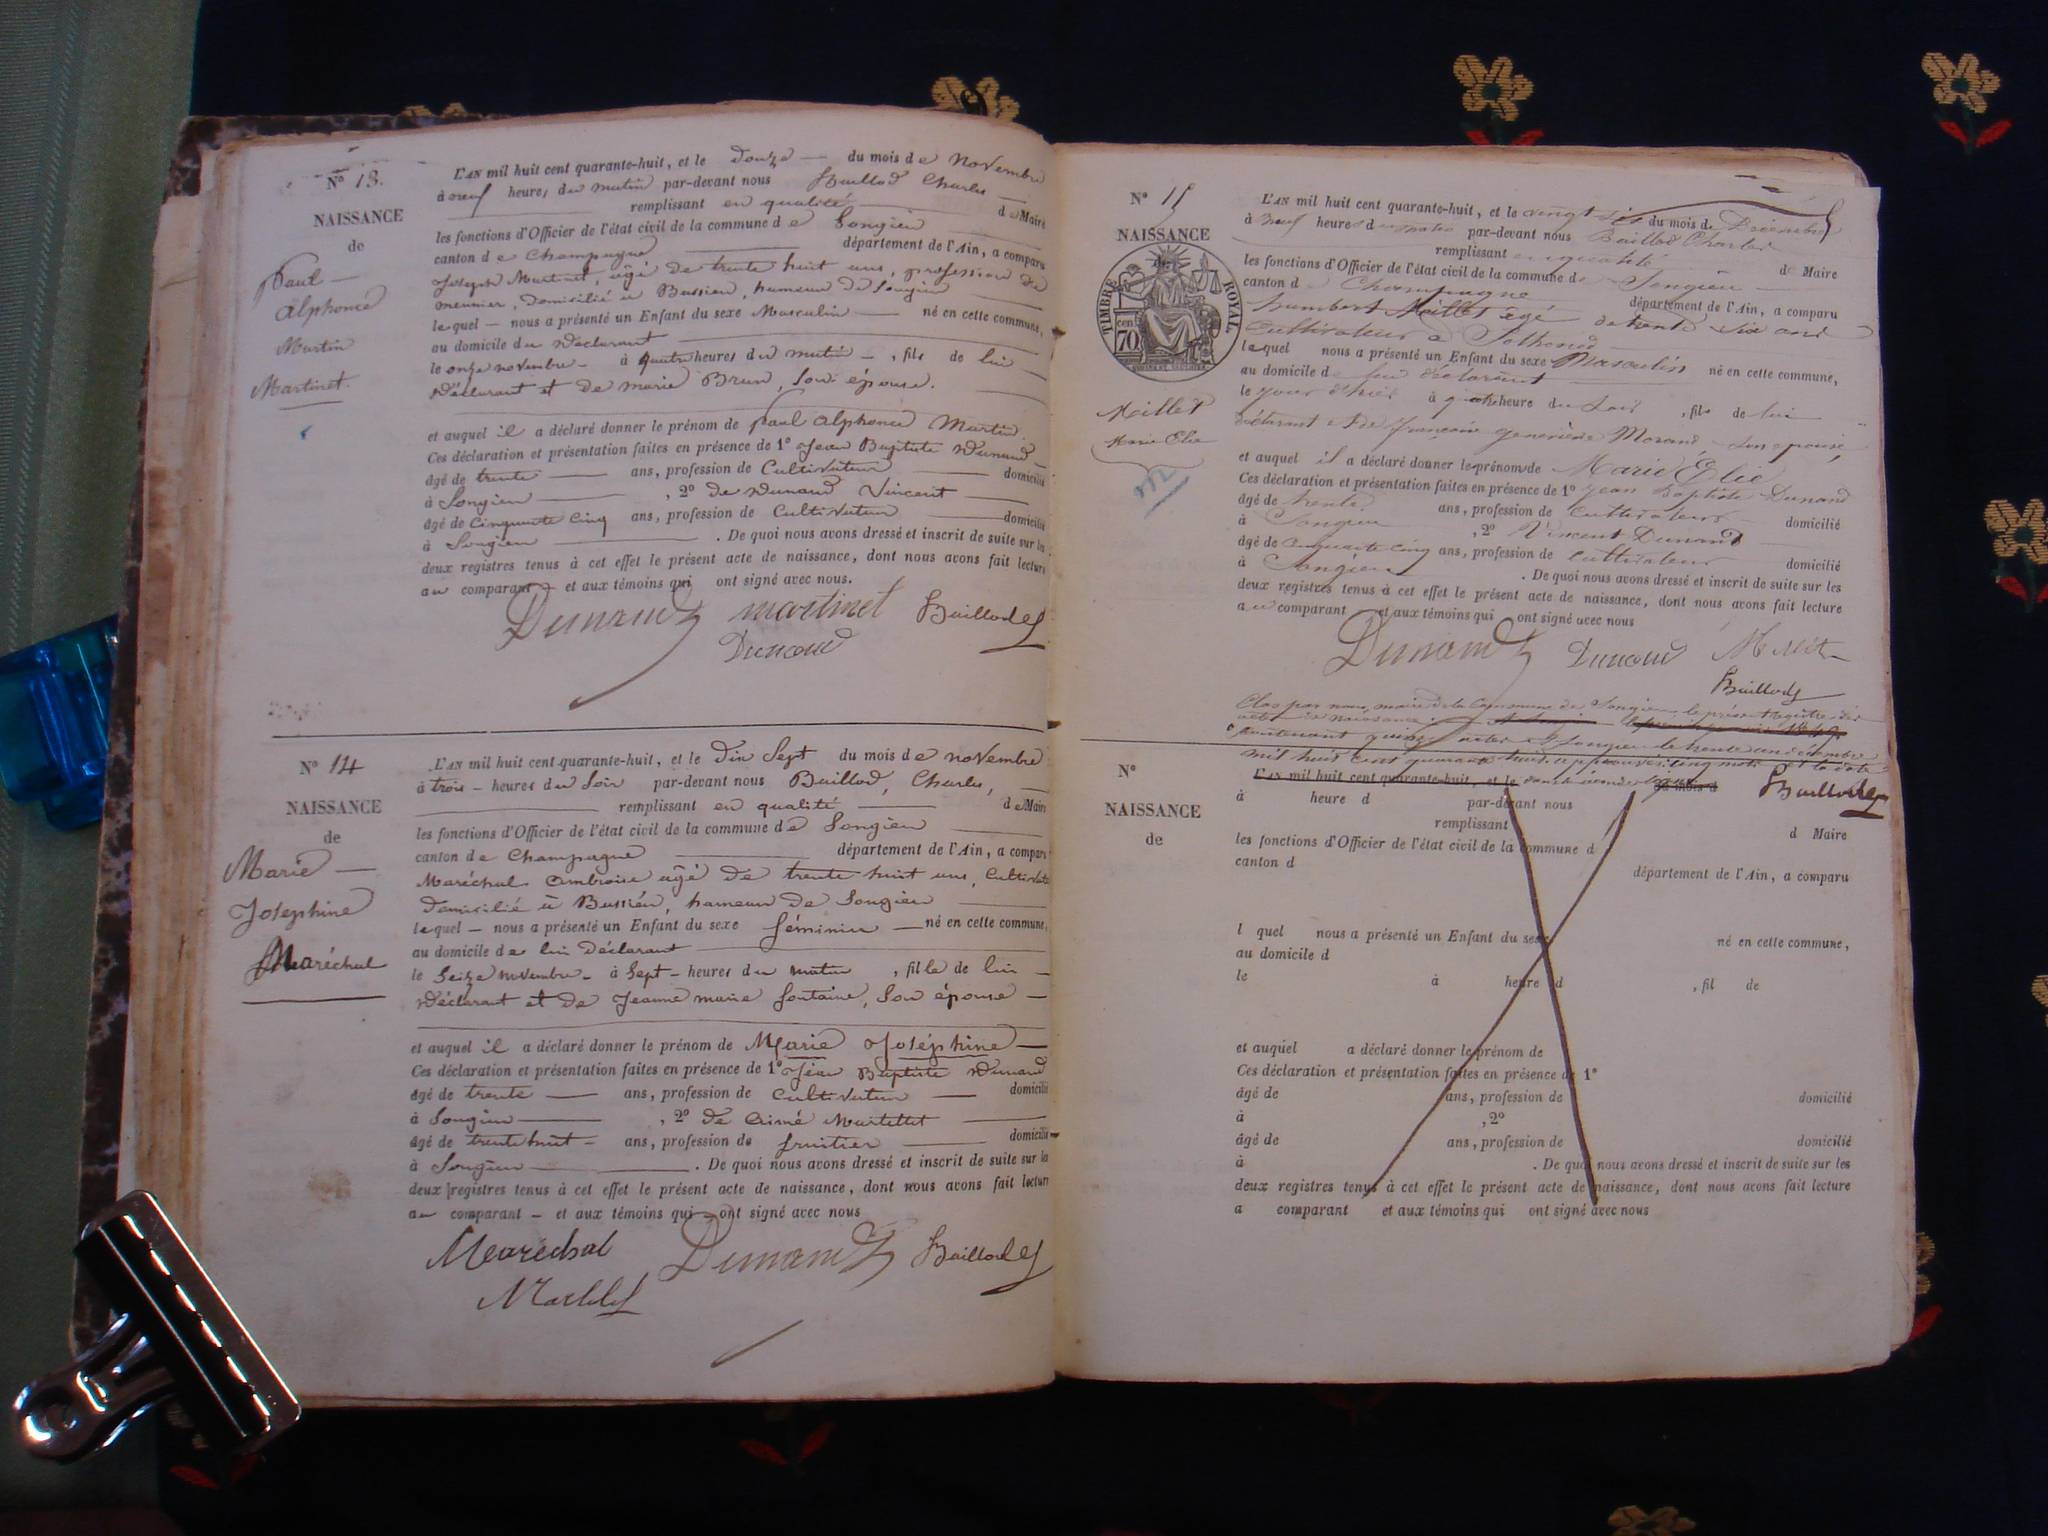 N° 13.
NAISSANCE
de
Paul
Alphonce
Martin
Martinet.
L'AN mil huit cent quarante-huit, et le Douze du mois de Novembre
à neuf heures du matin par-devant nous Baillod Charles
remplissant en qualité de Maire
les fonctions d'Officier de l'état civil de la commune de Songieu
canton de Champagne département de l'Ain, a comparu
Joseph Martinet, âgé de trente huit ans, profession de
meunier, domicilié à Bassieu, hameau de Songieu
lequel nous a présenté un Enfant du sexe Masculin né en cette commune,
au domicile du déclarant
le onze novembre à quatre heures du matin, fils de lui
déclarant et de marie Brun, son épouse.
et auquel il a déclaré donner le prénom de paul alphonce Martin
Ces déclaration et présentation faites en présence de 1° Jean Baptiste Dunand
âgé de trente ans, profession de Cultivateur domicilié
à Songieu, 2° de Dunand Vincent
âgé de Cinquante Cinq ans, profession de Cultivateur domicilié
à Songieu. De quoi nous avons dressé et inscrit de suite sur les
deux registres tenus à cet effet le présent acte de naissance, dont nous avons fait lecture
au comparant et aux témoins qui ont signé avec nous.
Dunand martinet Baillod
Dunand
N° 14
NAISSANCE
de
Marie
Josephine
Maréchal
L'AN mil huit cent quarante-huit, et le Dix Sept du mois de novembre
à trois heures du Soir par-devant nous Baillod, Charles,
remplissant en qualité de Maire
les fonctions d'Officier de l'état civil de la commune de Songieu
canton de Champagne département de l'Ain, a comparu
Maréchal ambroise âgé de trente huit ans, Cultivateur
domicilié à Bassieu, hameau de Songieu
lequel nous a présenté un Enfant du sexe féminin né en cette commune,
au domicile de lui déclarant
le Seize novembre à Sept heures du matin, fille de lui
déclarant et de Jeanne marie fontaine, Son épouse
et auquel il a déclaré donner le prénom de Marie Joséphine
Ces déclaration et présentation faites en présence de 1° Jean Baptiste Dunand
âgé de trente ans, profession de Cultivateur domicilié
à Songieu, 2° de Aimé Martellet
âgé de trente huit ans, profession de fruitier domicilié
à Songieu. De quoi nous avons dressé et inscrit de suite sur les
deux registres tenus à cet effet le présent acte de naissance, dont nous avons fait lecture
au comparant et aux témoins qui ont signé avec nous
Maréchal Dunand Baillod
N° 15
NAISSANCE
TIMBRE ROYAL
70
Maillet
Marie Elie
L'AN mil huit cent quarante-huit, et le vingt six du mois de Décembre
à neuf heures du matin par-devant nous Baillod Charles
remplissant en qualité de Maire
les fonctions d'Officier de l'état civil de la commune de Songieu
canton de Champagne département de l'Ain, a comparu
humbert Maillet âgé de trente six ans
Cultivateur à Sothonod
lequel nous a présenté un Enfant du sexe Masculin né en cette commune,
au domicile de lui déclarant
le jour d'hier à quatre heure du Soir, fils de lui
déclarant et de françoise geneviève Morand Son épouse,
et auquel il a déclaré donner le prénom de Marie Elie
Ces déclaration et présentation faites en présence de 1° Jean Baptiste Dunand
âgé de trente ans, profession de Cultivateur domicilié
à Songieu, 2° Vincent Dunand
âgé de Cinquante cinq ans, profession de Cultivateur domicilié
à Songieu. De quoi nous avons dressé et inscrit de suite sur les
deux registres tenus à cet effet le présent acte de naissance, dont nous avons fait lecture
au comparant et aux témoins qui ont signé avec nous
Dunand Dunand
Baillod
Clos par nous, maire de la Commune de Songieu le présent registre des
actes de naissance 1849
Contenant quinze actes à Songieu le trente un décembre
mil huit cent quarante huit. approuvés cinq mots et la date
N°
NAISSANCE
de
L'AN mil huit cent quarante-huit, et le du mois d Baillod
à heure d par-devant nous
remplissant d Maire
les fonctions d'Officier de l'état civil de la commune d
canton d département de l'Ain, a comparu
l quel nous a présenté un Enfant du sexe né en cette commune,
au domicile d
le à heure d , fil de
et auquel a déclaré donner le prénom de
Ces déclaration et présentation faites en présence de 1°
âgé de ans, profession de domicilié
à , 2°
âgé de ans, profession de domicilié
à . De quoi nous avons dressé et inscrit de suite sur les
deux registres tenus à cet effet le présent acte de naissance, dont nous avons fait lecture
a comparant et aux témoins qui ont signé avec nous